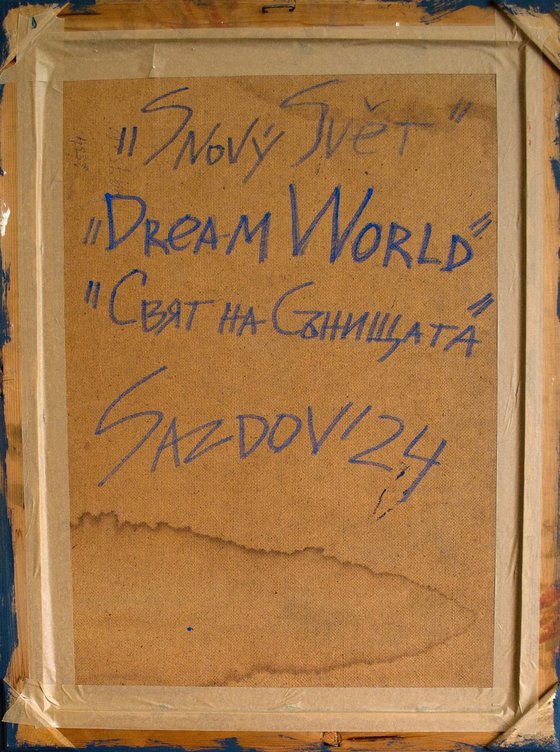 "Snový Svět"
"DREAM WORLD"
"Свят на Сънищата"
SAZDOV'24